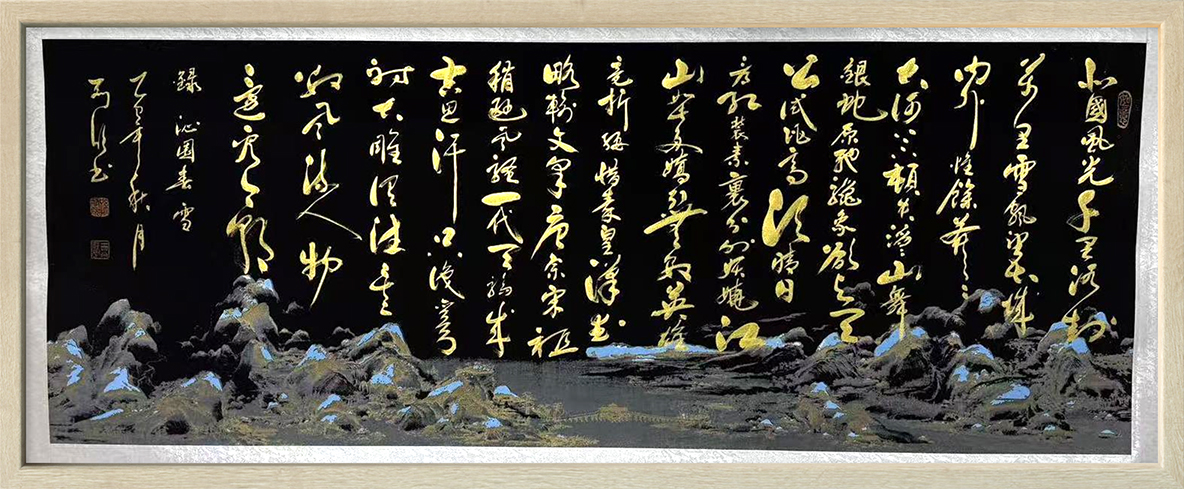 北國風光千里冰封
万里雪飘望长城
内外惟餘莽々
大河上下頓失滔々山舞
銀蛇原馳蠟象欲与天
公試比高須晴日
看红装素裹分外妖娆江
山如此多嬌引無数英雄
竞折腰惜秦皇漢武
略输文采唐宗宋祖
稍遜风骚一代天骄成
吉思汗只识弯弓
射大雕俱往矣
数风流人物
還看今朝
録沁園春雪
乙巳年秋月
书